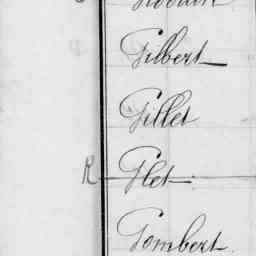 Gilbert
Gillet
R Glet
Gombert